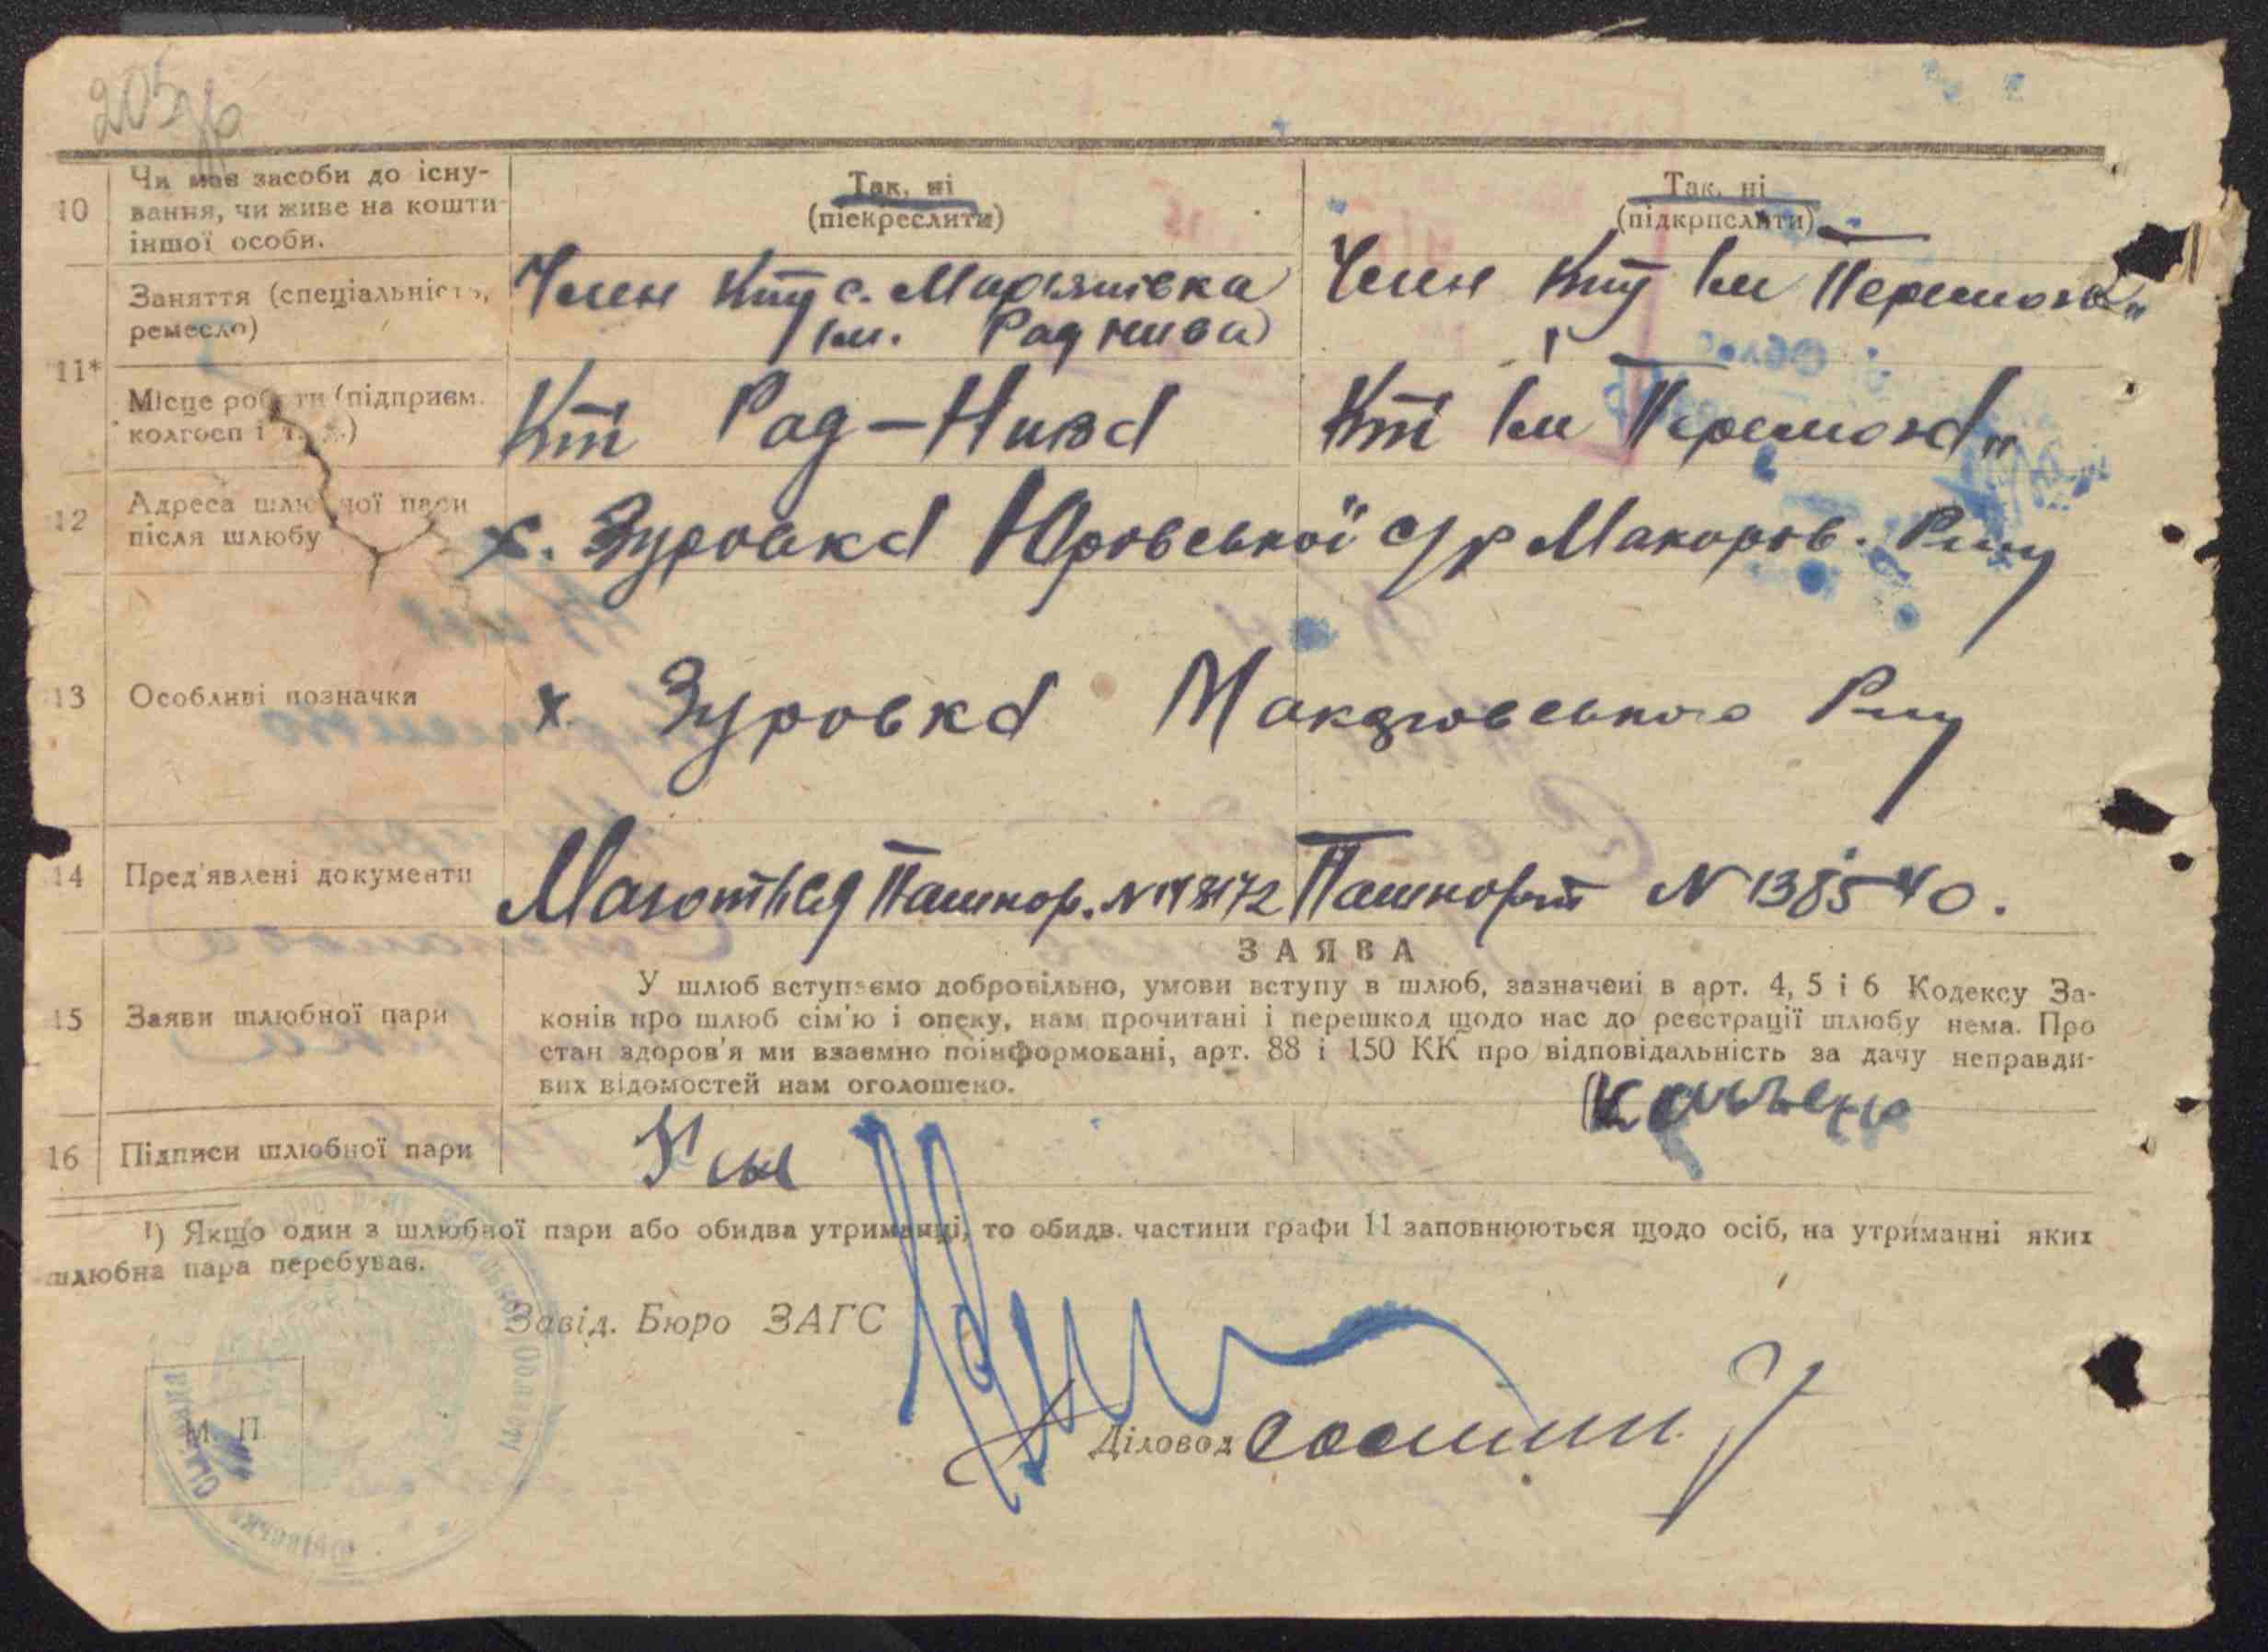 205
10 Чи має засоби до існу-
вання, чи живе на кошти
іншої особи.
Так, ні
(піекреслити)
Так, ні
(підкрпслити)
11* Заняття (спеціальність,
ремесло)
Член Кту с. Мар'янівка
ім. Рад нива
Член Кту ім Перемога"
Місце роботи (підприєм.
колгосп і т. д.)
Кті Рад-Нива
Кті ім Перемога"
12 Адреса шлюбної пари
після шлюбу
х. Зуровка Юровської с/р Макоров. Р-ну
13 Особливі позначки
х. Зуровка Макаровського Р-ну
14 Пред'явлені документи
Пашпор. N
Пашпорт N 138540.
15 Заяви шлюбної пари
ЗАЯВА
У шлюб вступаємо добровільно, умови вступу в шлюб, зазначені в арт. 4, 5 і 6 Кодексу За-
конів про шлюб сім'ю і опеку, нам прочитані і перешкод щодо нас до реєстрації шлюбу нема. Про
стан здоров'я ми взаємно поінформовані, арт. 88 і 150 КК про відповідальність за дачу неправди-
вих відомостей нам оголошено.
16 Підписи шлюбної пари
¹) Якщо один з шлюбної пари або обидва утриманці, то обидв. частини графи 11 заповнюються щодо осіб, на утриманні яких
шлюбна пара перебуває.
Завід. Бюро ЗАГС
Діловод
М. П.